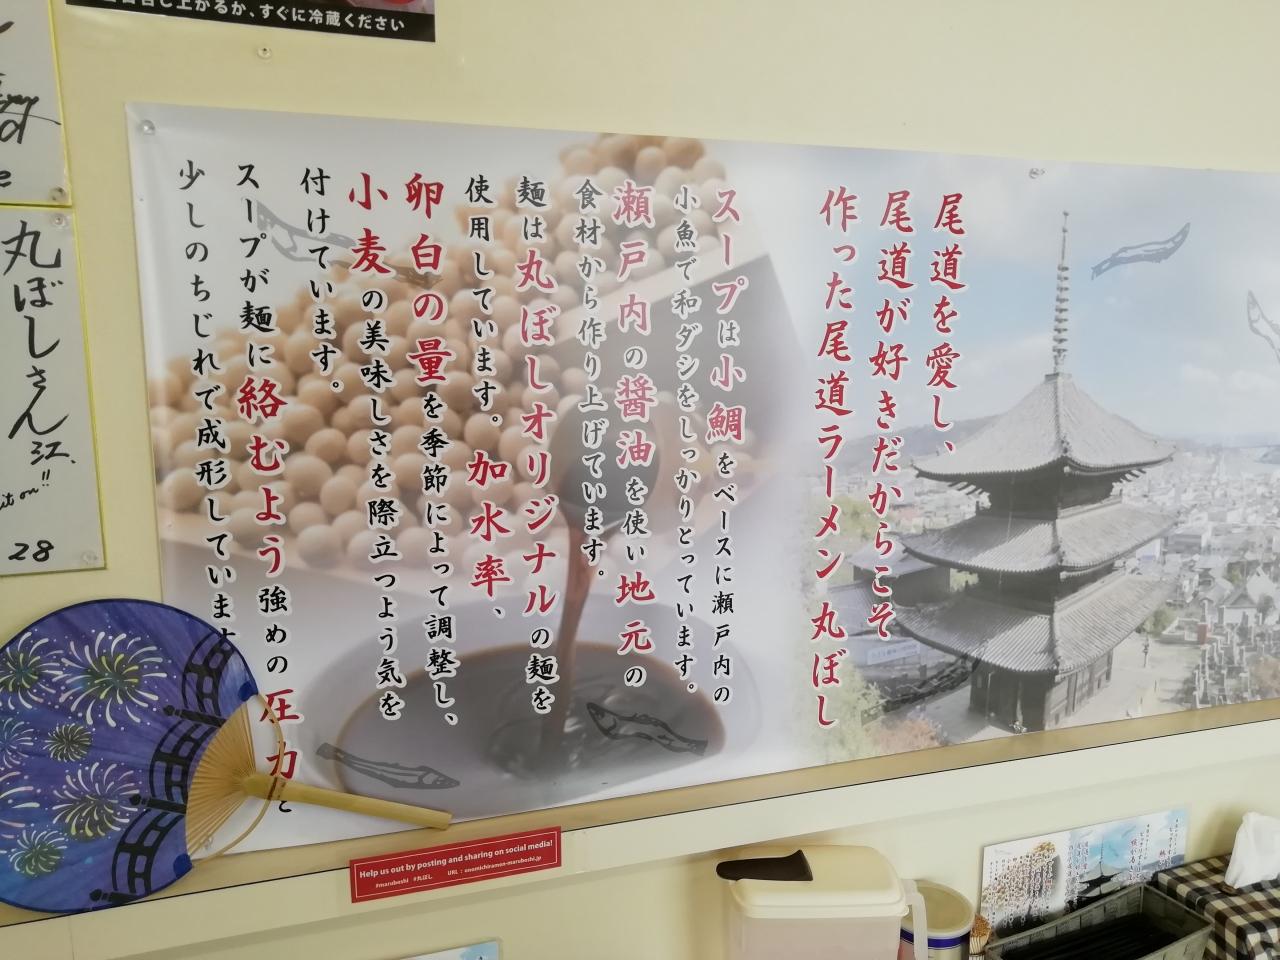 召し上がるか、すぐに冷蔵ください
尾道を愛し、
尾道が好きだからこそ
作った尾道ラーメン 丸ぼし
スープは小鯛をベースに瀬戸内の
小魚で和ダシをしっかりとっています。
瀬戸内の醤油を使い地元の
食材から作り上げています。
麺は丸ぼしオリジナルの麺を
使用しています。加水率、
卵白の量を季節によって調整し、
小麦の美味しさを際立つよう気を
付けています。
スープが麺に絡むよう強めの圧力と
少しのちじれで成形しています
丸ぼしさん江
28
Help us out by posting and sharing on social media!
#maruboshi #丸ぼし URL : onomichiramen-maruboshi.jp